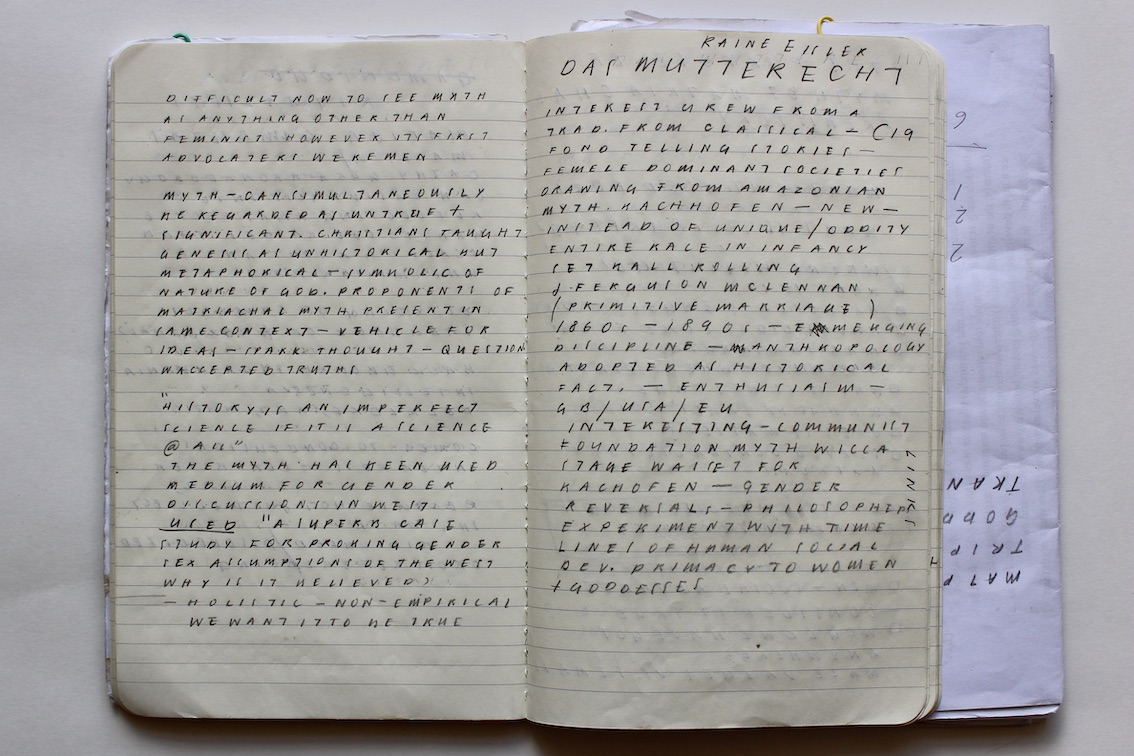 DIFFICULT NOW TO SEE MYTH
AS ANYTHING OTHER THAN
FEMINIST HOWEVER ITS FIRST
ADVOCATERS WERE MEN
MYTH – CAN SIMULTANEOUSLY
BE REGARDED AS UNTRUE +
SIGNIFICANT. CHRISTIANS TAUGHT
GENESIS AS UNHISTORICAL BUT
METAPHORICAL – SYMBOLIC OF
NATURE OF GOD. PROPONENTS OF
MATRIACHAL MYTH PRESENT IN
SAME CONTEXT – VEHICLE FOR
IDEAS – SPARK THOUGHT – QUESTION
ACCEPTED TRUTHS
"
HISTORY IS AN IMPERFECT
SCIENCE IF IT IS A SCIENCE
@ ALL"
THE MYTH HAS BEEN USED
MEDIUM FOR GENDER
DISCUSSIONS IN WEST
USED "A SUPERB CASE
STUDY FOR PROBING GENDER
SEX ASSUMPTIONS OF THE WEST
WHY IS IT BELIEVED?
– HOLISTIC – NON-EMPIRICAL
WE WANT IT TO BE TRUE
RAINE EISLER
DAS MUTTERECHT
INTEREST GREW FROM A
TRAD. FROM CLASSICAL – C19
FOND TELLING STORIES –
FEMELE DOMINANT SOCIETIES
DRAWING FROM AMAZONIAN
MYTH. BACHHOFEN – NEW –
INSTEAD OF UNIQUE/ODDITY
ENTIRE RACE IN INFANCY
SET BALL ROLLING
J. FERGUSON MCLENNAN
(PRIMITIVE MARRIAGE)
1860s – 1890s – EMERGING
DISCIPLINE – ANTHROPOLOGY
ADOPTED AS HISTORICAL
FACT. – ENTHUSIASM –
GB/USA/EU
INTERESTING – COMMUNIST
FOUNDATION MYTH WICCA
STAGE WAS SET FOR
BACHOFEN – GENDER
REVERSALS – PHILOSOPHERS
EXPERIMENT WITH TIME
LINES OF HUMAN SOCIAL
DEV. PRIMACY TO WOMEN
+ GODDESSES
LINKS
6
1
2
2
TRAN
GODD
TRIP
MATR